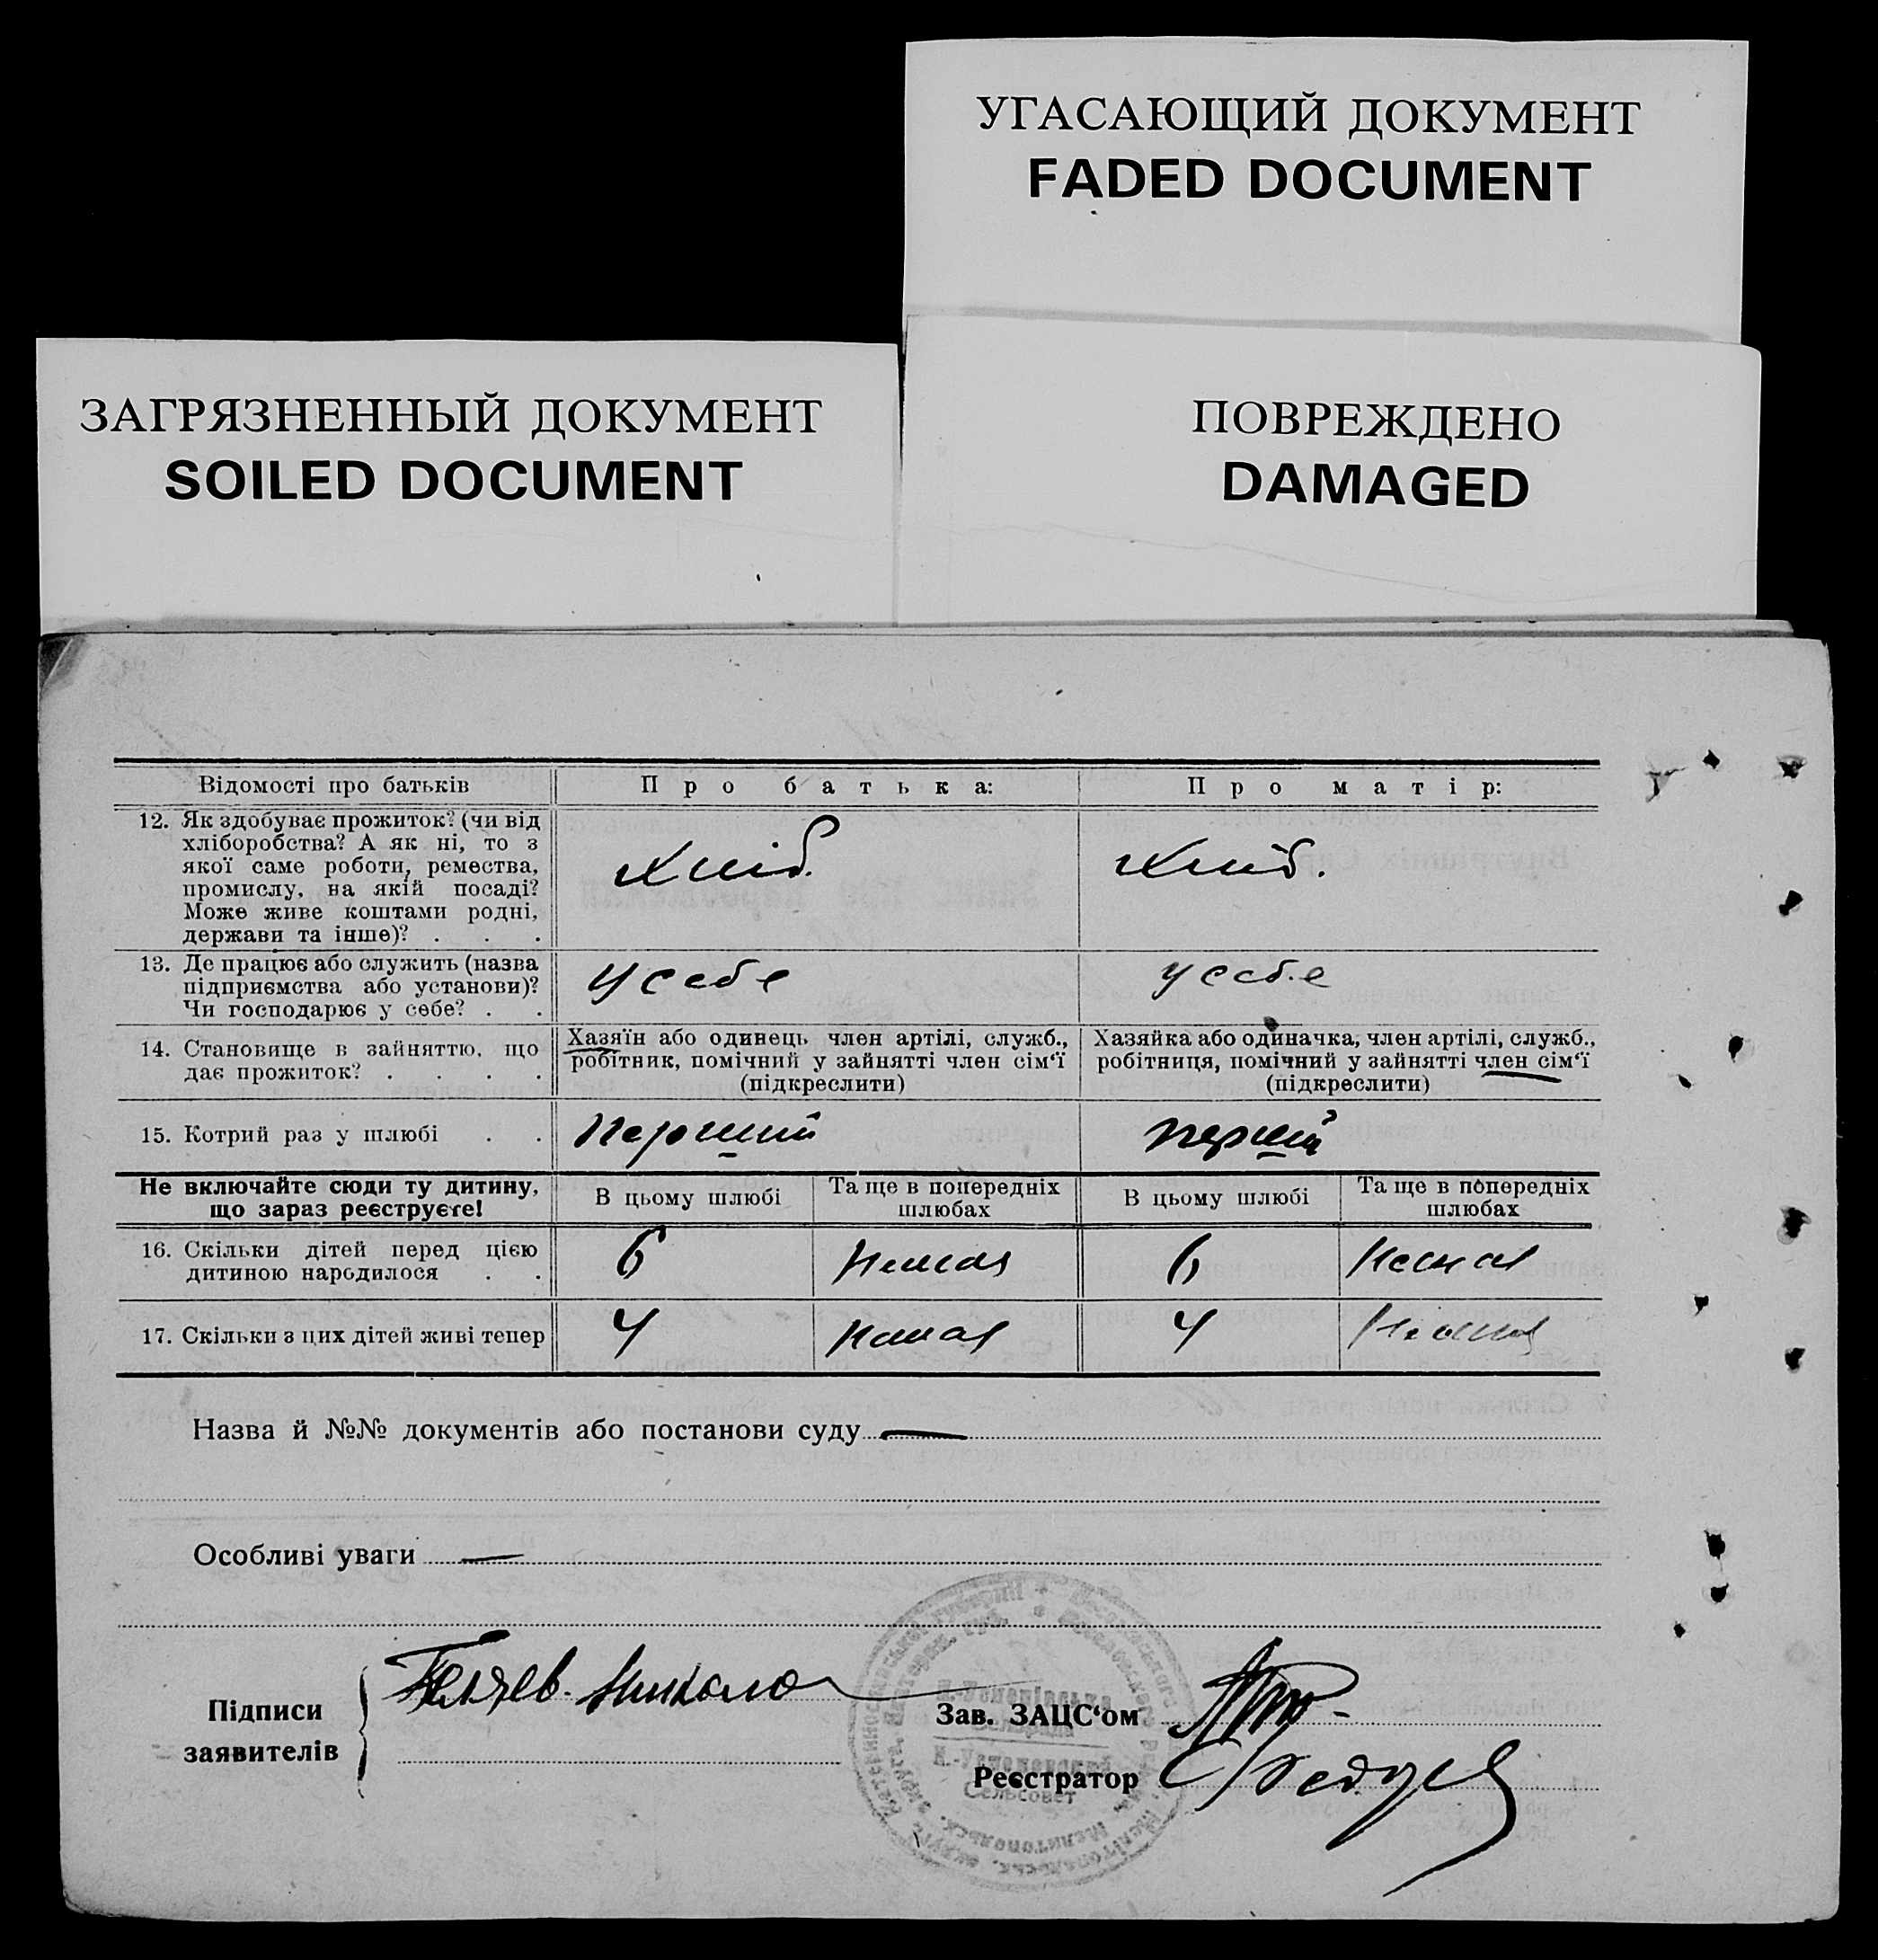 УГАСАЮЩИЙ ДОКУМЕНТ
FADED DOCUMENT
ЗАГРЯЗНЕННЫЙ ДОКУМЕНТ
SOILED DOCUMENT
ПОВРЕЖДЕНО
DAMAGED
Відомості про батьків
Про батька:
Про матір:
12. Як здобуває прожиток? (чи від
хліборобства? А як ні, то з
якої саме роботи, ремества,
промислу, на якій посаді?
Може живе коштами родні,
держави та інше)? . . .
хліб.
хліб.
13. Де працює або служить (назва
підприємства або установи)?
Чи господарює у себе? . .
у себе
у себе
14. Становище в зайняттю, що
дає прожиток? . . . .
Хазяїн або одинець член артілі, служб.,
робітник, помічний у зайнятті член сім'ї
(підкреслити)
Хазяйка або одиначка, член артілі, служб.,
робітниця, помічний у зайнятті член сім'ї
(підкреслити)
15. Котрий раз у шлюбі . .
Перший
перший
Не включайте сюди ту дитину,
що зараз реєструєте!
В цьому шлюбі
Та ще в попередніх
шлюбах
В цьому шлюбі
Та ще в попередніх
шлюбах
16. Скільки дітей перед цією
дитиною народилося . .
6
Немає
6
Немає
17. Скільки з цих дітей живі тепер
4
Немає
4
Немає
Назва й №№ документів або постанови суду
Особливі уваги
Підписи
заявителів
Микола
Зав. ЗАЦС'ом
Реєстратор
Сельсовет